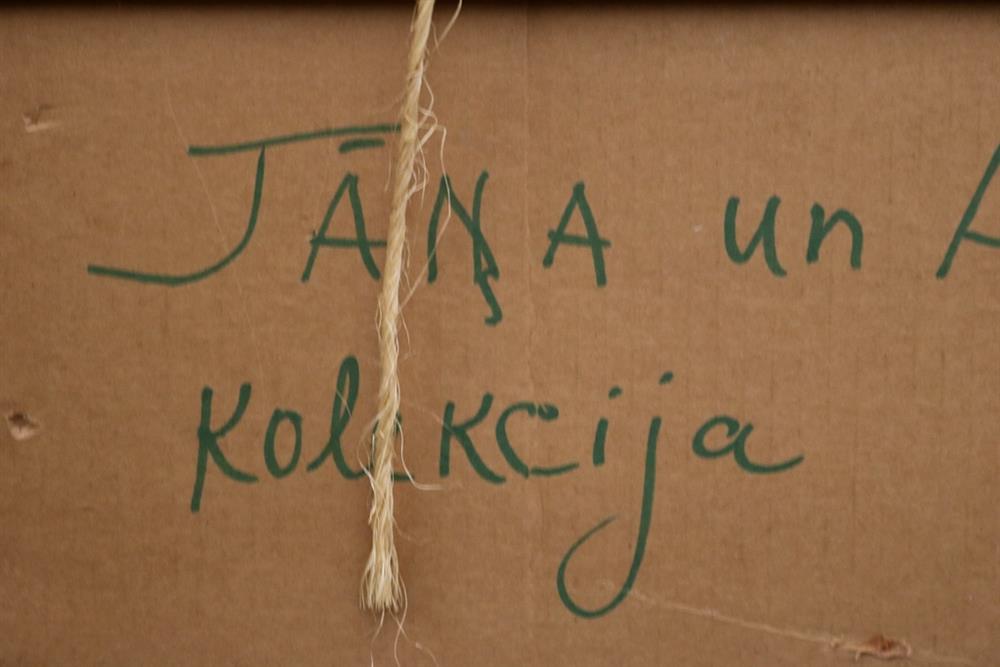 JĀŅA un A
Kolekcija